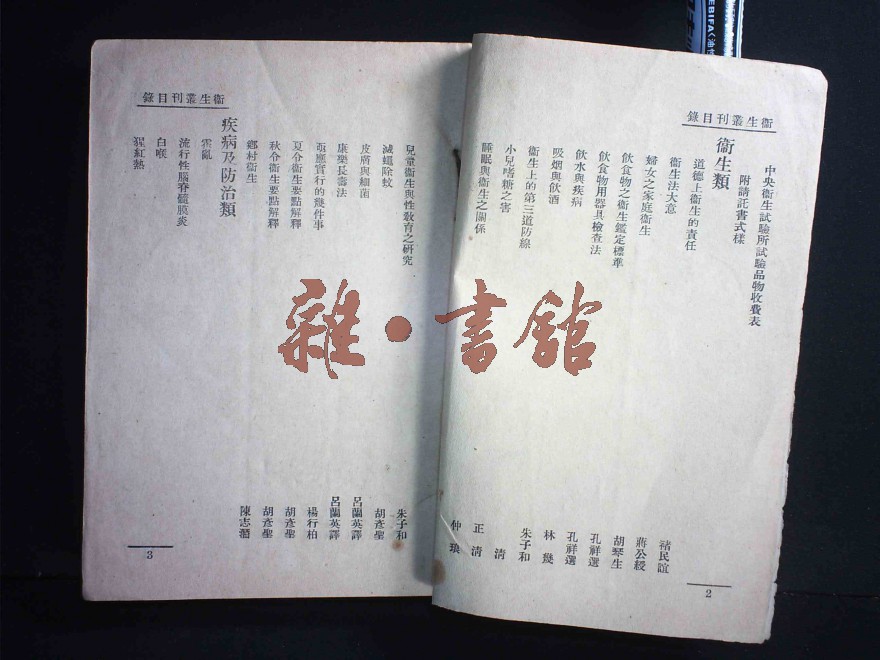 衞生叢刊目錄
中央衞生試驗所試驗品物收費表
附請託書式樣
衞生類
道德上衞生的責任 褚民誼
衞生法大意 蔣公綬
婦女之家庭衞生 胡琴生
飲食物之衞生鑑定標準 孔祥選
飲食物用器具檢查法 孔祥選
飲水與疾病 林幾
吸烟與飲酒 朱子和
衞生上的第三道防線 清
小兒嗜糖之害 正清
睡眠與衞生之關係 仲琅
2
衞生叢刊目錄
兒童衞生與性教育之研究 朱子和
滅蠅除蚊 胡彥聖
皮膚與細菌 呂蘭英譯
康樂長壽法 呂蘭英譯
亟應實行的幾件事 楊行柏
夏令衞生要點解釋 胡彥聖
秋令衞生要點解釋 胡彥聖
鄉村衞生 陳志潛
疾病及防治類
霍亂
流行性腦脊髓膜炎
白喉
猩紅熱
3
雜·書館